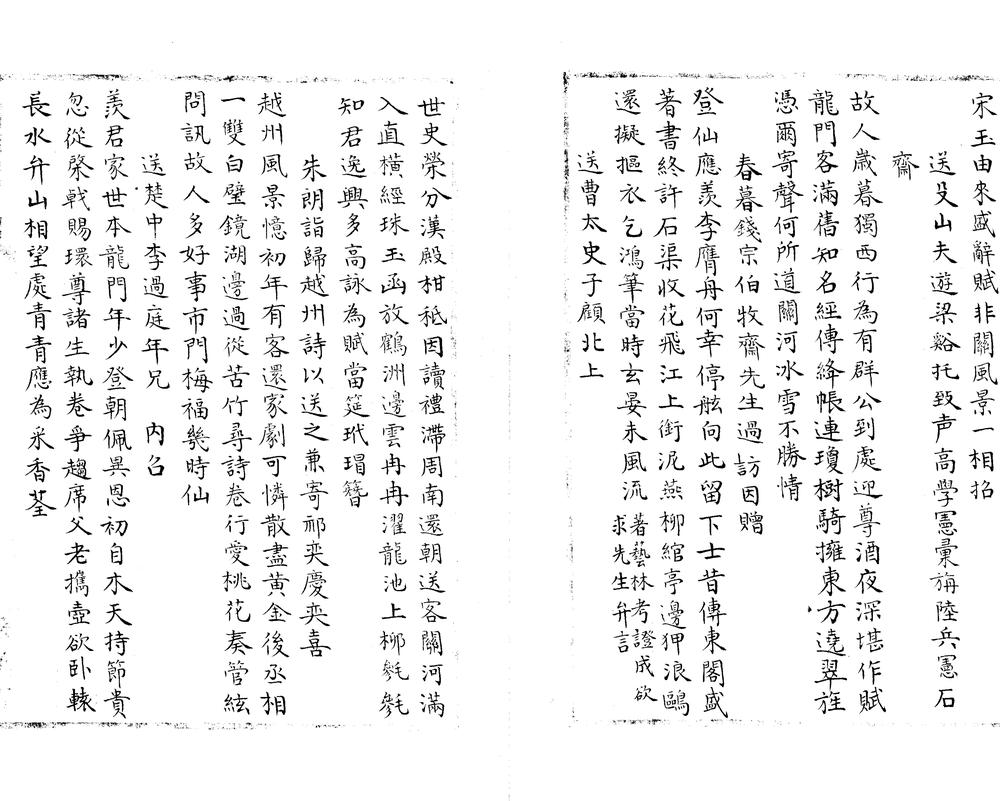 宋玉由來盛辭賦非關風景一相招
送殳山夫遊梁谿托致声高學憲彙旃陸兵憲石
齋
故人歲暮獨西行為有群公到處迎尊酒夜深堪作賦
龍門客滿舊知名經傳絳帳連瓊樹騎擁東方遶翠旌
憑爾寄聲何所道關河冰雪不勝情
春暮錢宗伯牧齋先生過訪因贈
登仙應羨李膺舟何幸停舷向此留下士昔傳東閣盛
著書終許石渠收花飛江上銜泥燕柳綰亭邊狎浪鷗
還擬摳衣乞鴻筆當時玄晏未風流
著藝林考證成欲
求先生弁言
送曹太史子顧北上
世史榮分漢殿柑秪因讀禮滯周南還朝送客關河滿
入直橫經珠玉函放鶴洲邊雲冉冉濯龍池上柳毿毿
知君逸興多高詠為賦當筵玳瑁簪
朱朗詣歸越州詩以送之兼寄祁奕慶奕喜
越州風景憶初年有客還家劇可憐散盡黃金後丞相
一雙白璧鏡湖邊過從苦竹尋詩卷行愛桃花奏管絃
問訊故人多好事市門梅福幾時仙
送楚中李過庭年兄 內召
羨君家世本龍門年少登朝佩異恩初自木天持節貴
忽從棨戟賜環尊諸生執卷爭趨席父老攜壺欲臥轅
長水弁山相望處青青應為采香荃